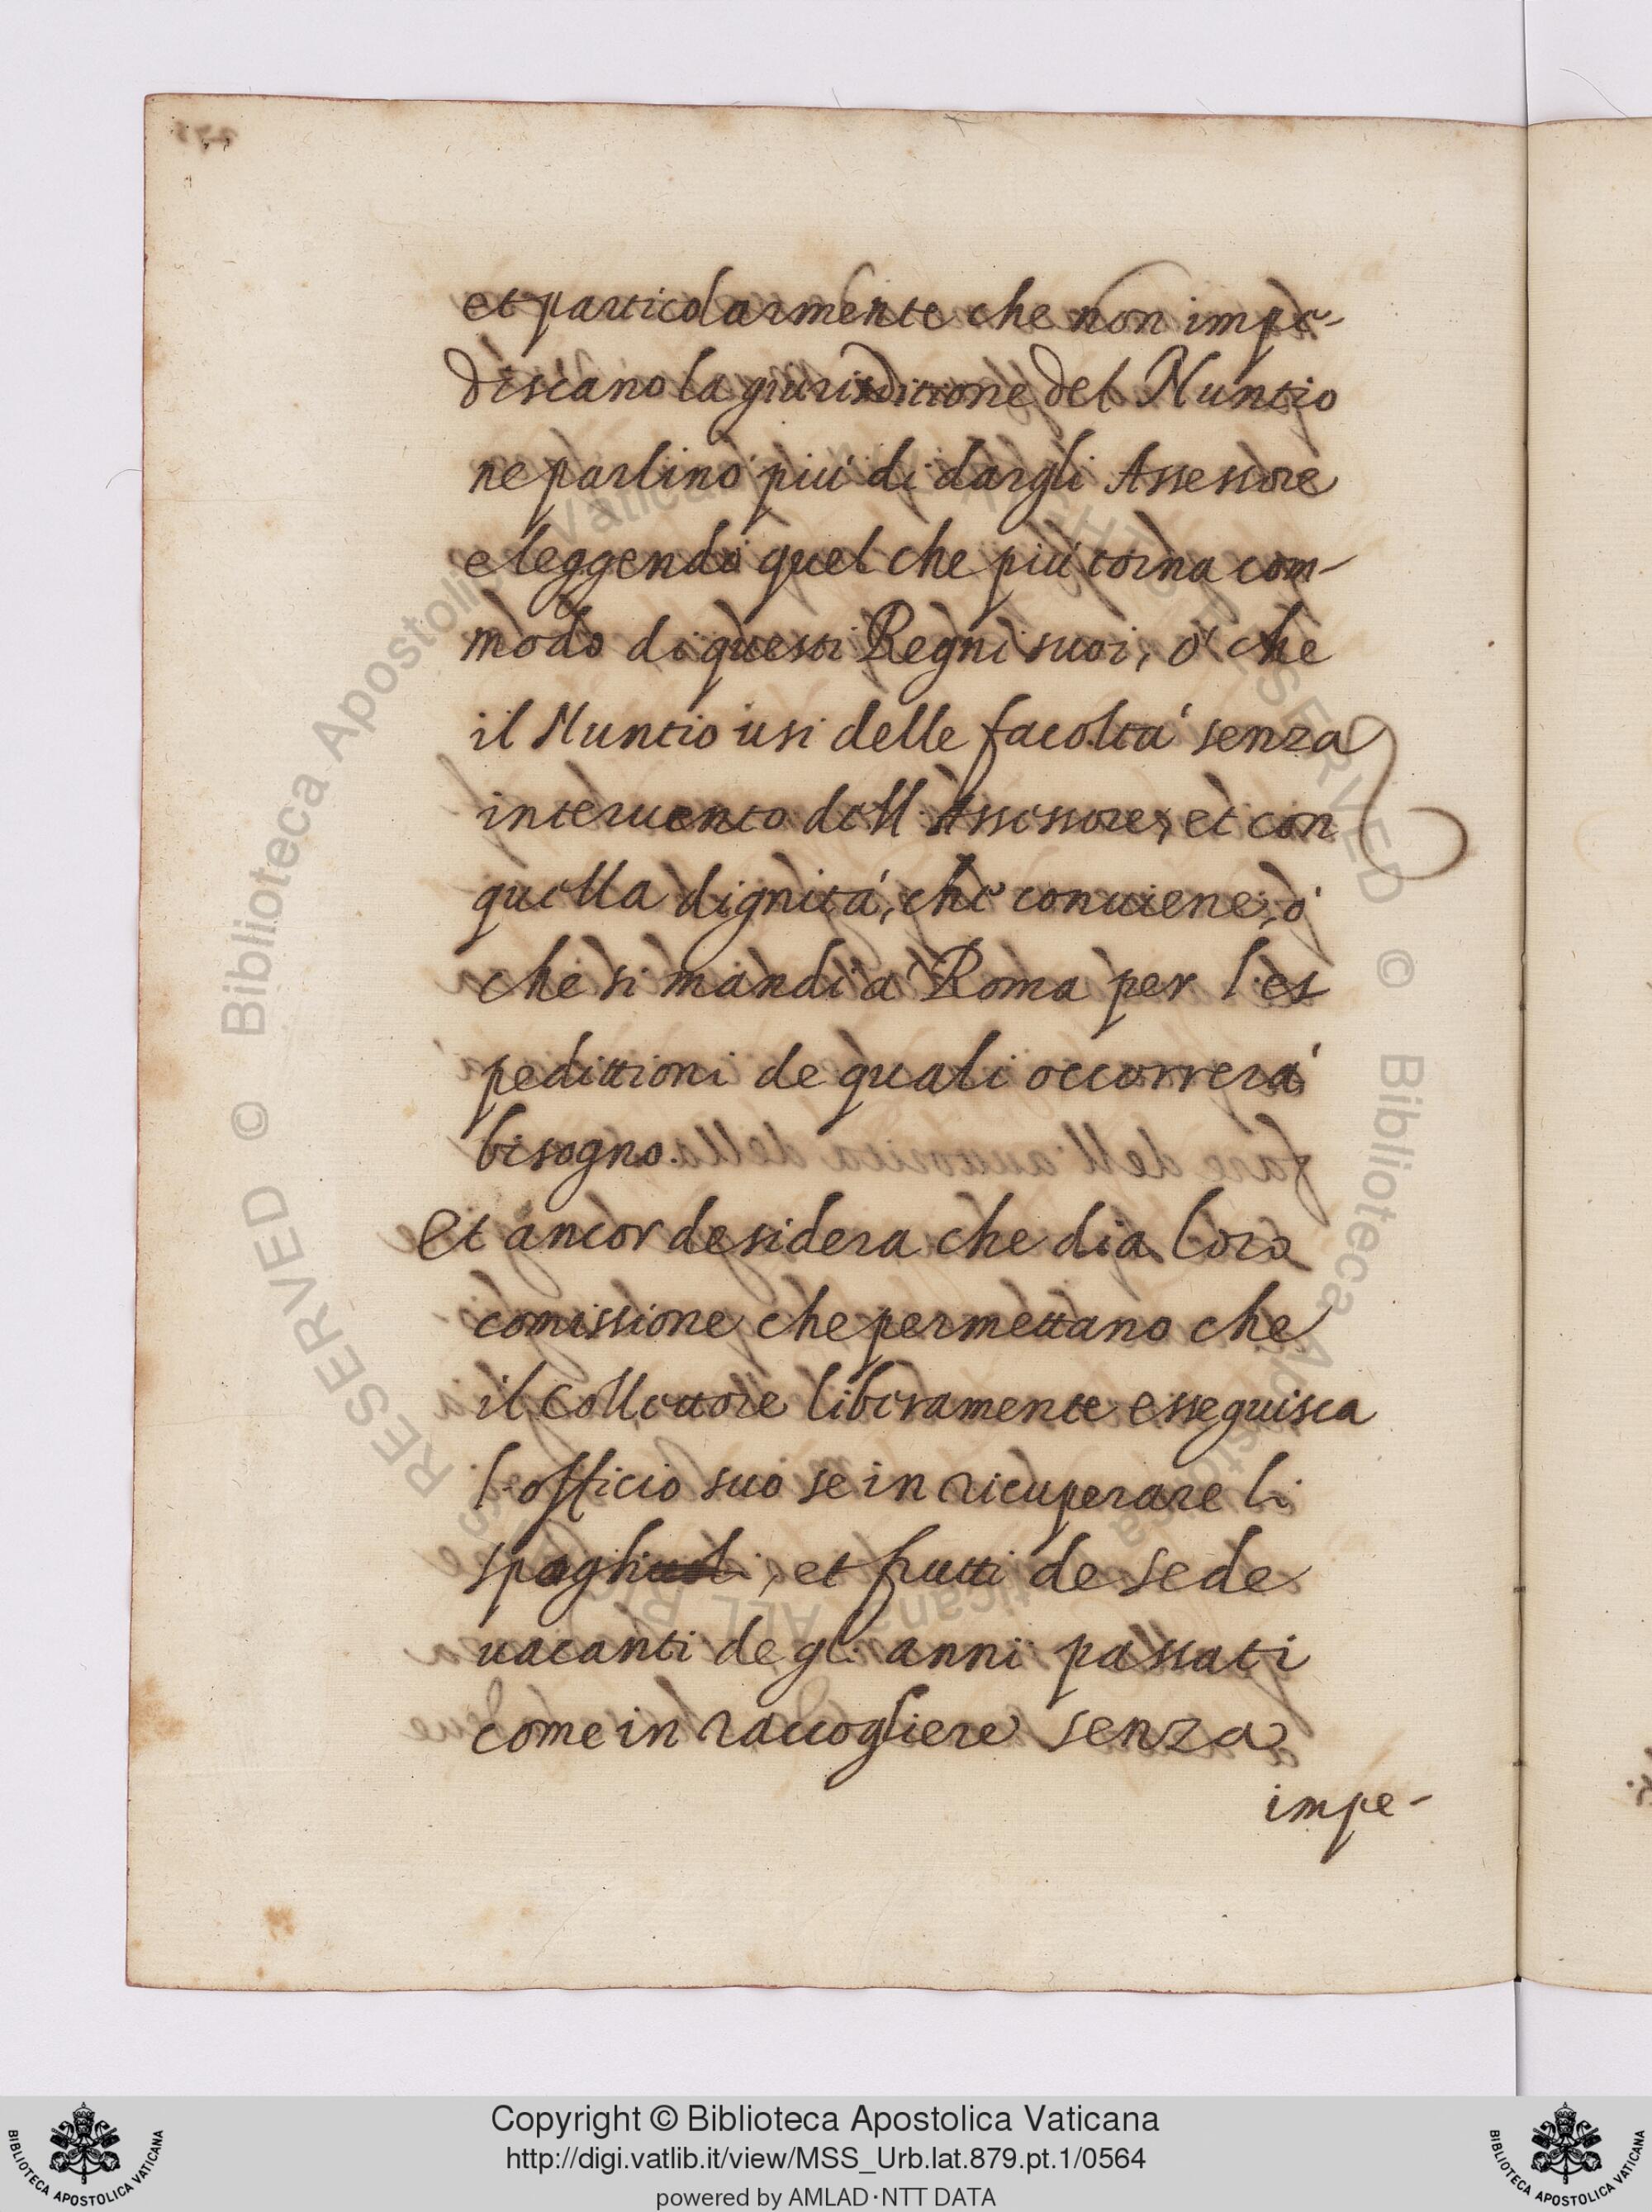 et particolarmente che non impe-
discano la giurisditione del Nuntio
ne parlino più di dargli Assessore
eleggendo quel che più torna com-
modo di questi Regni suoi, ò che
il Nuntio usi delle facoltà senza
interuento dell' Assessore, et con
quella dignità, che conuiene, ò
che si mandi à Roma per l'es
pedittioni de quali occorrerà
bisogno.
Et ancor desidera che dia loro
comissione che permettano che
il Collettore liberamente esseguisca
l'officio suo se in ricuperare li
spogli, et frutti de sede
uacanti de gl' anni passati
come in raccogliere senza
impe-
Copyright © Biblioteca Apostolica Vaticana
http://digi.vatlib.it/view/MSS_Urb.lat.879.pt.1/0564
powered by AMLAD·NTT DATA
BIBLIOTECA APOSTOLICA VATICANA
BIBLIOTECA APOSTOLICA VATICANA
© Biblioteca Apostolica Vaticana ALL RIGHTS RESERVED
© Biblioteca Apostolica Vaticana ALL RIGHTS RESERVED